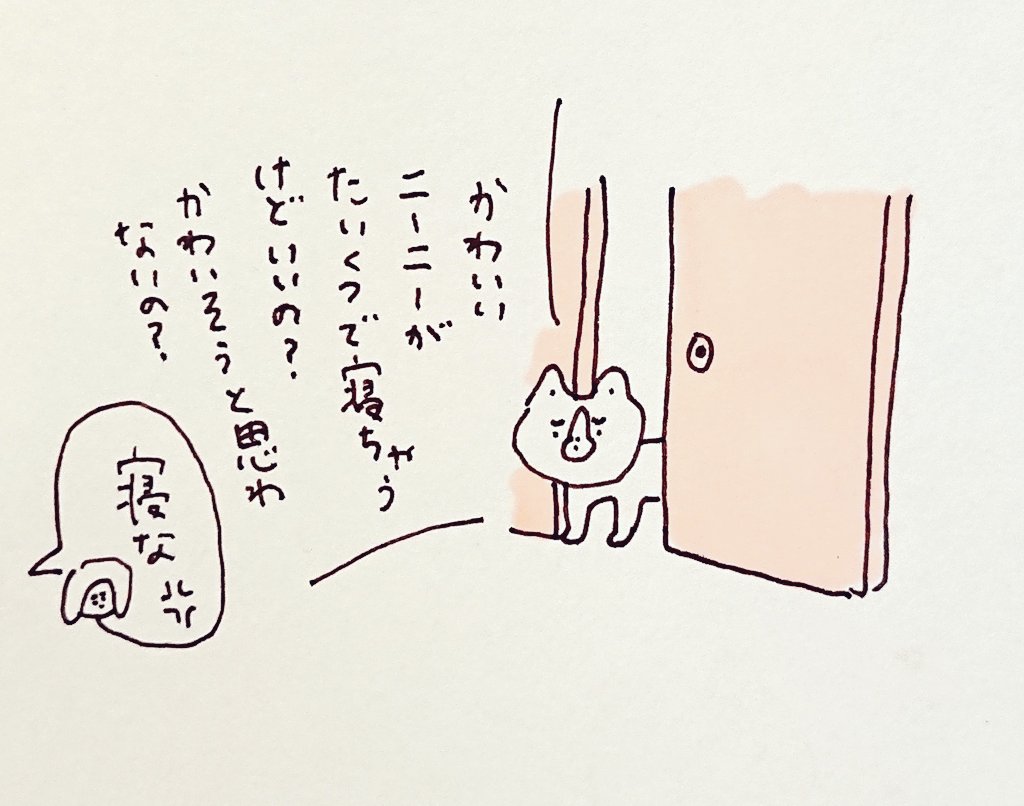 かわいい
ニーニーが
たいくつで寝ちゃう
けどいいの？
かわいそうと思わ
ないの？
寝な